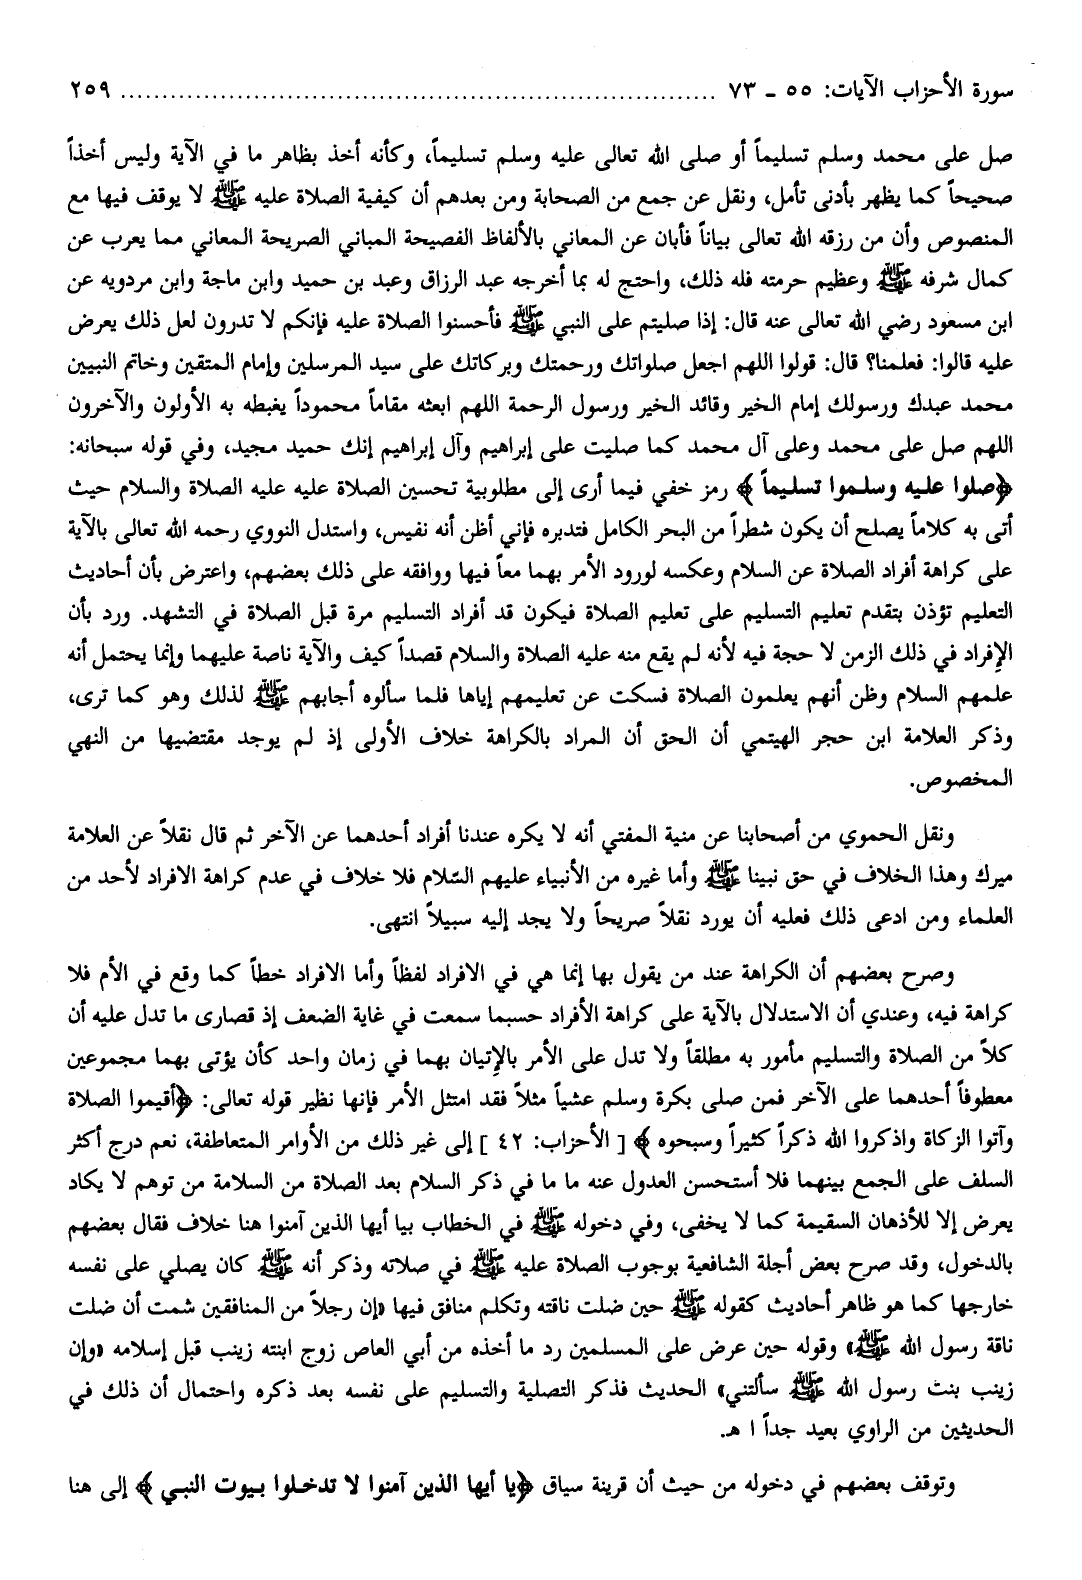 سورة الأحزاب الآيات: ٥٥ ـ ٧٣ ........................................................................ ٢٥٩
صل على محمد وسلم تسليماً أو صلى الله تعالى عليه وسلم تسليماً، وكأنه أخذ بظاهر ما في الآية وليس أخذاً
صحيحاً كما يظهر بأدنى تأمل، ونقل عن جمع من الصحابة ومن بعدهم أن كيفية الصلاة عليه ﷺ لا يوقف فيها مع
المنصوص وأن من رزقه الله تعالى بياناً فأبان عن المعاني بالألفاظ الفصيحة المباني الصريحة المعاني مما يعرب عن
كمال شرفه ﷺ وعظيم حرمته فله ذلك، واحتج له بما أخرجه عبد الرزاق وعبد بن حميد وابن ماجة وابن مردويه عن
ابن مسعود رضي الله تعالى عنه قال: إذا صليتم على النبي ﷺ فأحسنوا الصلاة عليه فإنكم لا تدرون لعل ذلك يعرض
عليه قالوا: فعلمنا؟ قال: قولوا اللهم اجعل صلواتك ورحمتك وبركاتك على سيد المرسلين وإمام المتقين وخاتم النبيين
محمد عبدك ورسولك إمام الخير وقائد الخير ورسول الرحمة اللهم ابعثه مقاماً محموداً يغبطه به الأولون والآخرون
اللهم صل على محمد وعلى آل محمد كما صليت على إبراهيم وآل إبراهيم إنك حميد مجيد، وفي قوله سبحانه:
﴿صلوا عليه وسلموا تسليماً﴾ رمز خفي فيما أرى إلى مطلوبية تحسين الصلاة عليه عليه الصلاة والسلام حيث
أتى به كلاماً يصلح أن يكون شطراً من البحر الكامل فتدبره فإني أظن أنه نفيس، واستدل النووي رحمه الله تعالى بالآية
على كراهة أفراد الصلاة عن السلام وعكسه لورود الأمر بهما معاً فيها ووافقه على ذلك بعضهم، واعترض بأن أحاديث
التعليم تؤذن بتقدم تعليم التسليم على تعليم الصلاة فيكون قد أفراد التسليم مرة قبل الصلاة في التشهد. ورد بأن
الإفراد في ذلك الزمن لا حجة فيه لأنه لم يقع منه عليه الصلاة والسلام قصداً كيف والآية ناصة عليهما وإنما يحتمل أنه
علمهم السلام وظن أنهم يعلمون الصلاة فسكت عن تعليمهم إياها فلما سألوه أجابهم ﷺ لذلك وهو كما ترى،
وذكر العلامة ابن حجر الهيتمي أن الحق أن المراد بالكراهة خلاف الأولى إذ لم يوجد مقتضيها من النهي
المخصوص.
ونقل الحموي من أصحابنا عن منية المفتي أنه لا يكره عندنا أفراد أحدهما عن الآخر ثم قال نقلاً عن العلامة
ميرك وهذا الخلاف في حق نبينا ﷺ وأما غيره من الأنبياء عليهم السّلام فلا خلاف في عدم كراهة الافراد لأحد من
العلماء ومن ادعى ذلك فعليه أن يورد نقلاً صريحاً ولا يجد إليه سبيلاً انتهى.
وصرح بعضهم أن الكراهة عند من يقول بها إنما هي في الافراد لفظاً وأما الافراد خطاً كما وقع في الأم فلا
كراهة فيه، وعندي أن الاستدلال بالآية على كراهة الأفراد حسبما سمعت في غاية الضعف إذ قصارى ما تدل عليه أن
كلاً من الصلاة والتسليم مأمور به مطلقاً ولا تدل على الأمر بالإتيان بهما في زمان واحد كأن يؤتى بهما مجموعين
معطوفاً أحدهما على الآخر فمن صلى بكرة وسلم عشياً مثلاً فقد امتثل الأمر فإنها نظير قوله تعالى: ﴿أقيموا الصلاة
وآتوا الزكاة واذكروا الله ذكراً كثيراً وسبحوه﴾ [ الأحزاب: ٤٢ ] إلى غير ذلك من الأوامر المتعاطفة، نعم درج أكثر
السلف على الجمع بينهما فلا أستحسن العدول عنه ما ما في ذكر السلام بعد الصلاة من السلامة من توهم لا يكاد
يعرض إلا للأذهان السقيمة كما لا يخفى، وفي دخوله ﷺ في الخطاب بيا أيها الذين آمنوا هنا خلاف فقال بعضهم
بالدخول، وقد صرح بعض أجلة الشافعية بوجوب الصلاة عليه ﷺ في صلاته وذكر أنه ﷺ كان يصلي على نفسه
خارجها كما هو ظاهر أحاديث كقوله ﷺ حين ضلت ناقته وتكلم منافق فيها «إن رجلاً من المنافقين شمت أن ضلت
ناقة رسول الله ﷺ» وقوله حين عرض على المسلمين رد ما أخذه من أبي العاص زوج ابنته زينب قبل إسلامه «وإن
زينب بنت رسول الله ﷺ سألتني» الحديث فذكر التصلية والتسليم على نفسه بعد ذكره واحتمال أن ذلك في
الحديثين من الراوي بعيد جداً ا هـ.
وتوقف بعضهم في دخوله من حيث أن قرينة سياق ﴿يا أيها الذين آمنوا لا تدخلوا بيوت النبي﴾ إلى هنا